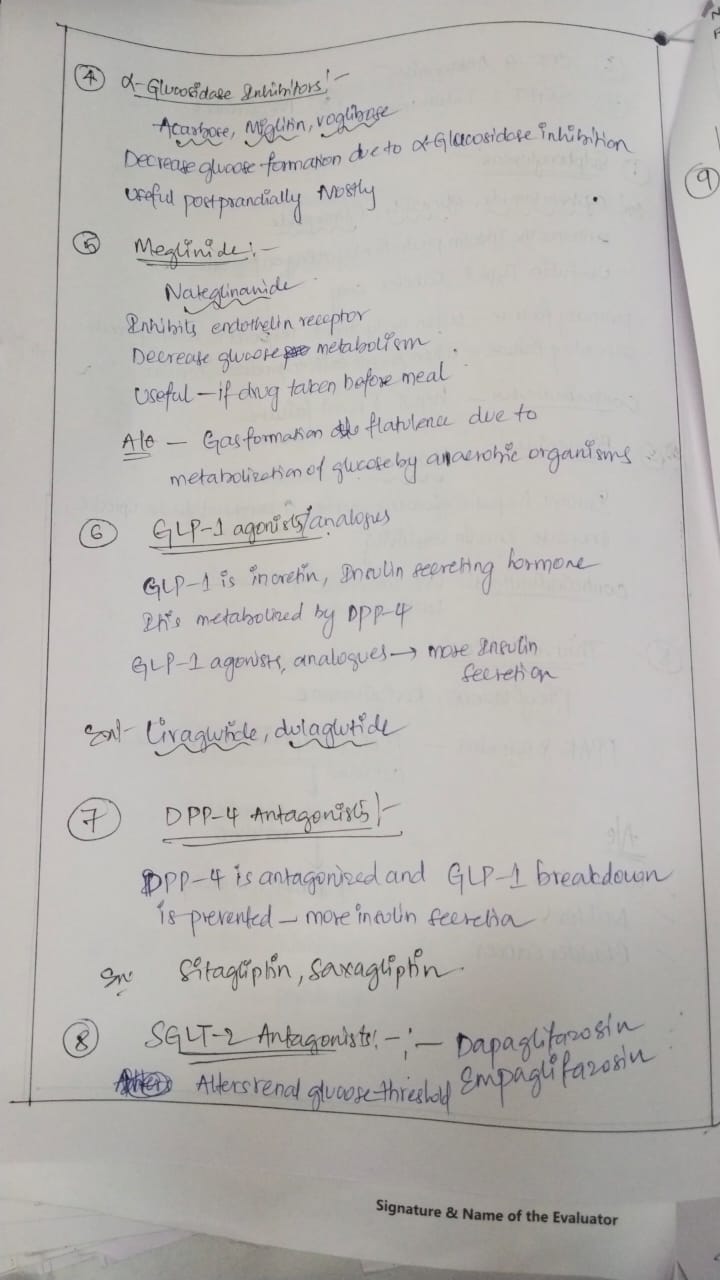 ④ α-Glucosidase Inhibitors:-
Acarbose, Miglitin, voglibose
Decrease glucose formation due to α-Glucosidase inhibition
Useful postprandially Mostly
⑤ Meglinide:-
Nateglinanide
Inhibits endothelin receptor
Decrease glucose metabolism
Useful - if drug taken before meal
A/e - Gas formation flatulence due to
metabolization of glucose by anaerobic organisms
⑥ GLP-1 agonists/analogues
GLP-1 is incretin, Insulin secreting hormone
It is metabolized by DPP-4
GLP-1 agonists, analogues → more Insulin
secretion
Liraglutide, dulaglutide
⑦ DPP-4 Antagonists:-
DPP-4 is antagonized and GLP-1 breakdown
is prevented - more insulin secretion
Sitagliptin, Saxagliptin.
⑧ SGLT-2 Antagonists:-:- Dapaglifozosin
Empaglifazosin
Alters renal glucose threshold
⑨
Signature & Name of the Evaluator